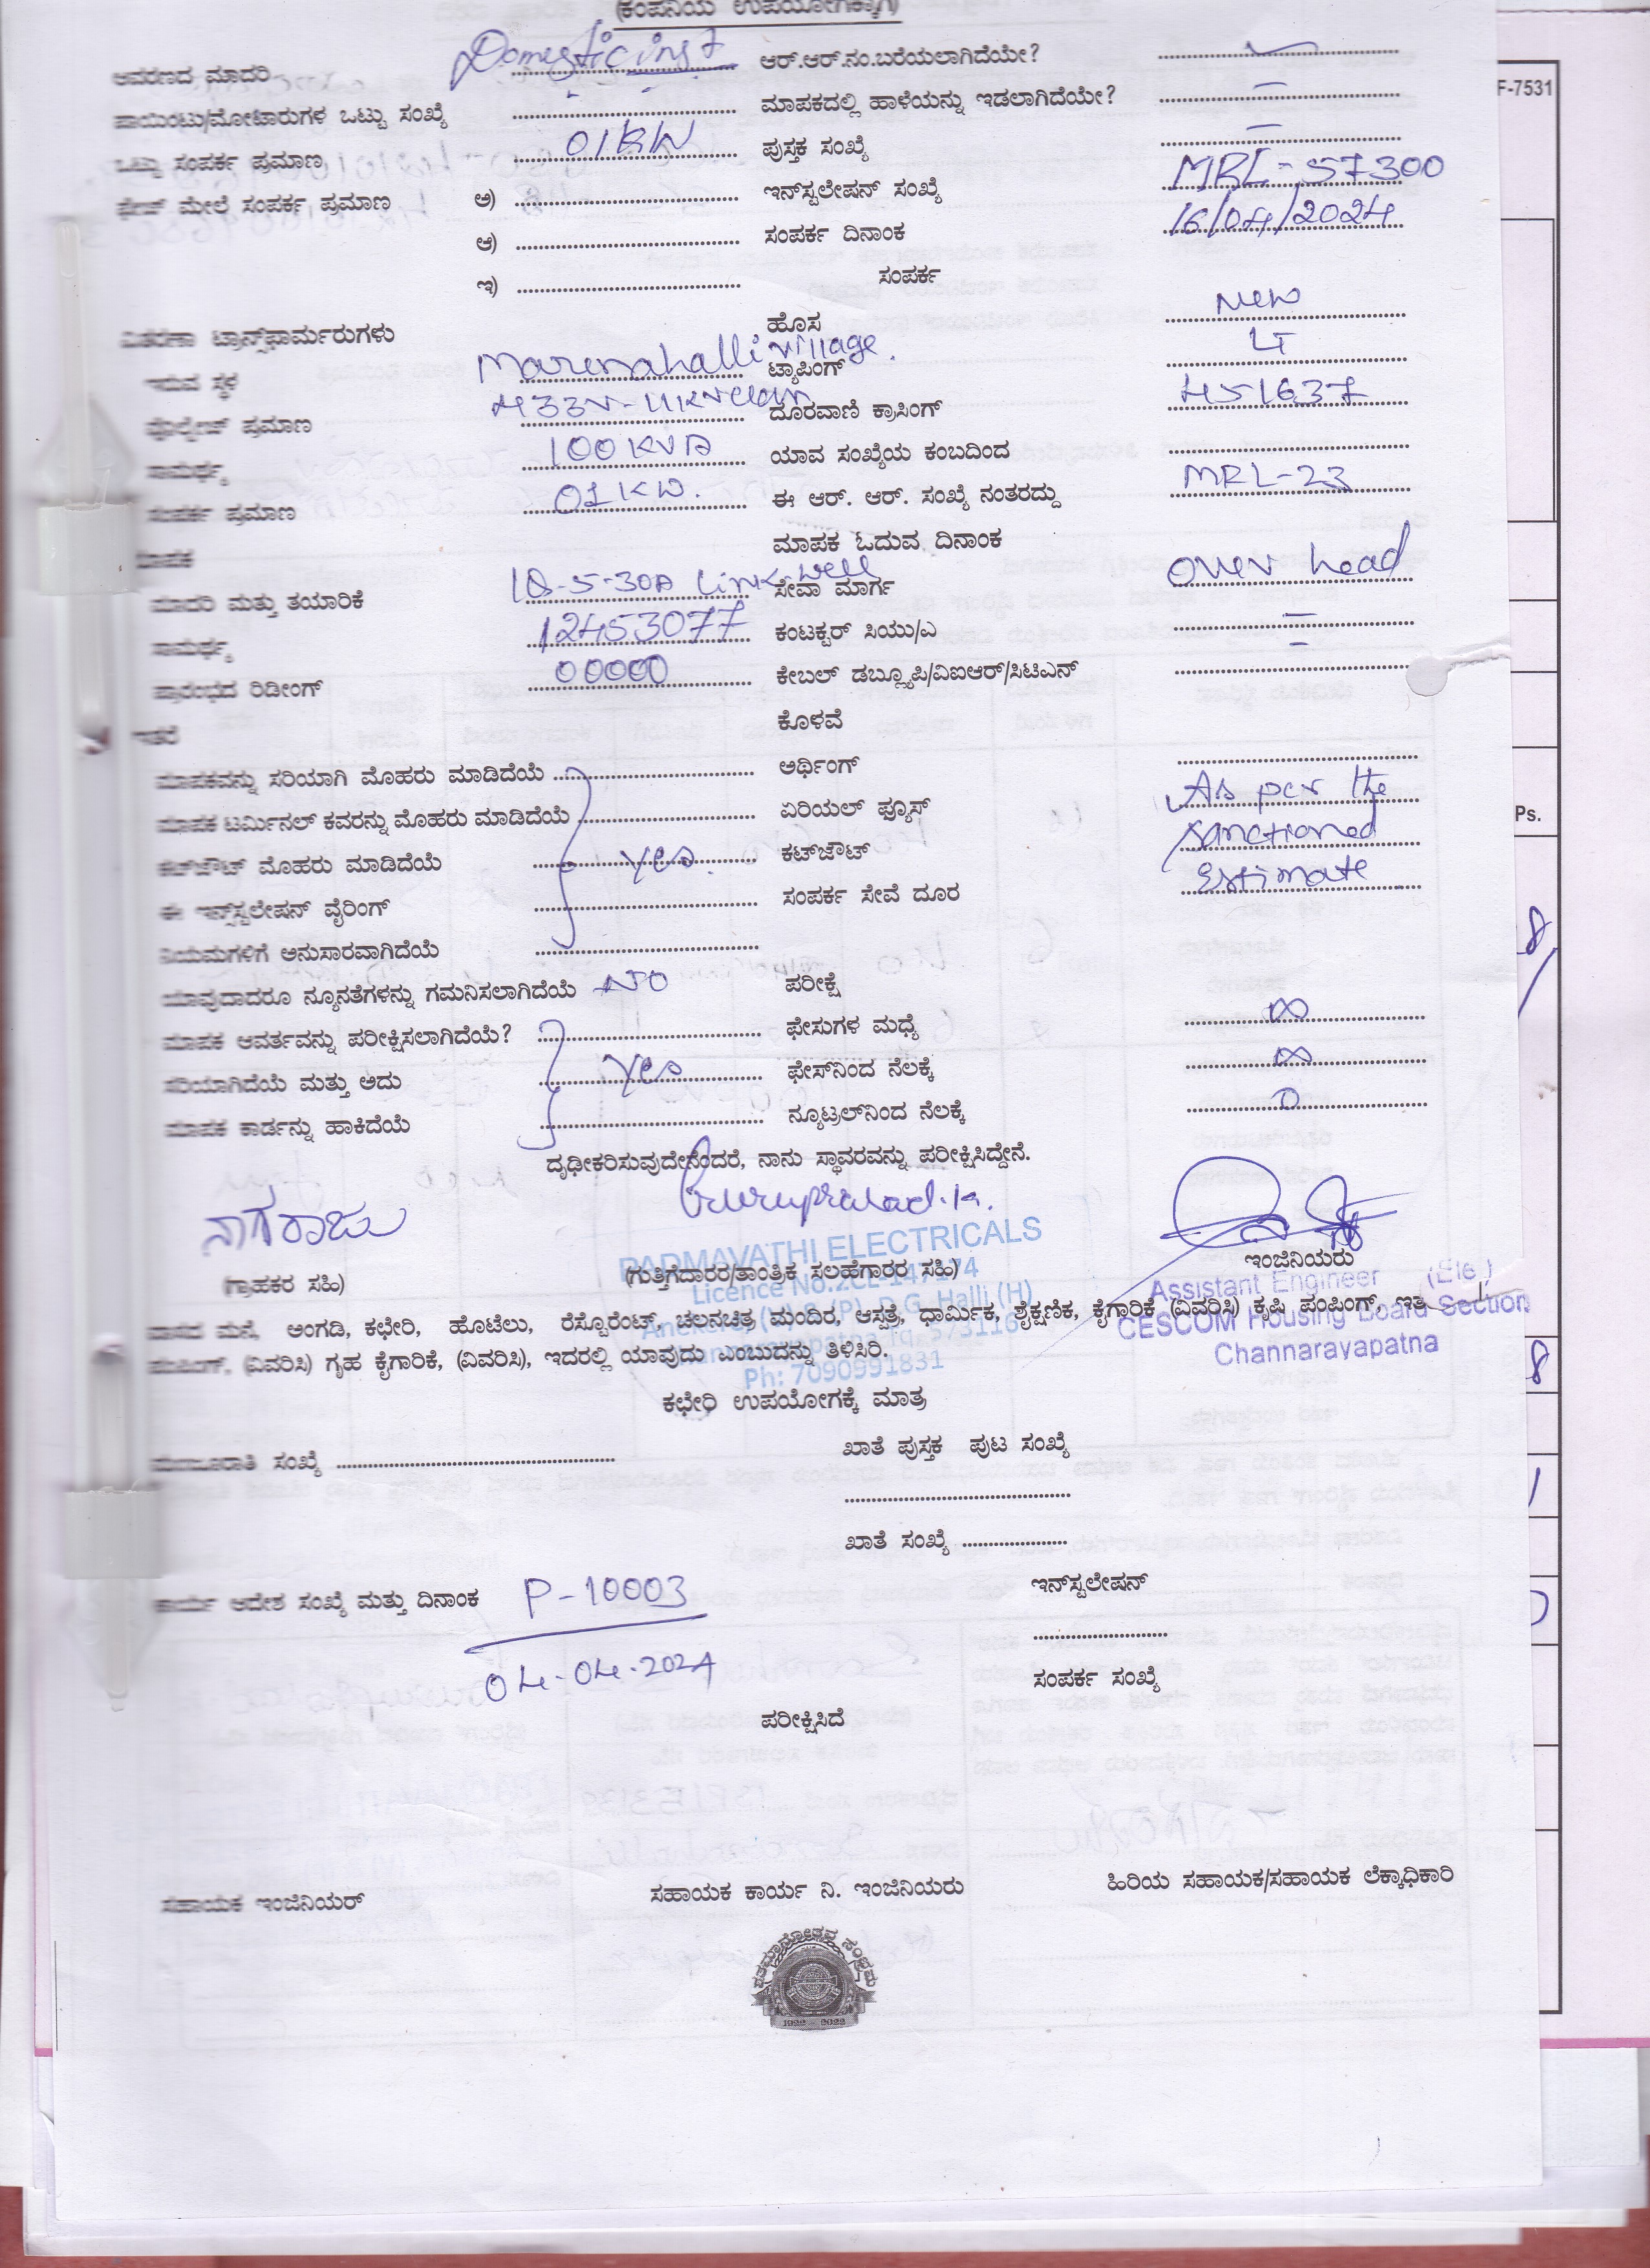 (ಕಂಪನಿಯ ಉಪಯೋಗಕ್ಕಾಗಿ)
ಆವರಣದ ಮಾದರಿ Domestic inst ಆರ್.ಆರ್.ನಂ.ಬರೆಯಲಾಗಿದೆಯೇ?
ಪಾಯಿಂಟು/ಮೋಟಾರುಗಳ ಒಟ್ಟು ಸಂಖ್ಯೆ - ಮಾಪಕದಲ್ಲಿ ಹಾಳೆಯನ್ನು ಇಡಲಾಗಿದೆಯೇ? -
ಒಟ್ಟು ಸಂಪರ್ಕ ಪ್ರಮಾಣ 01KW ಪುಸ್ತಕ ಸಂಖ್ಯೆ -
ಫೇಜ್ ಮೇಲೆ ಸಂಪರ್ಕ ಪ್ರಮಾಣ ಅ) ಇನ್‌ಸ್ಟಲೇಷನ್ ಸಂಖ್ಯೆ MRL-57300
ಆ) ಸಂಪರ್ಕ ದಿನಾಂಕ 16/04/2024
ಇ) ಸಂಪರ್ಕ
ಹೊಸ New
ವಿತರಣಾ ಟ್ರಾನ್ಸ್‌ಫಾರ್ಮರುಗಳು
ಇರುವ ಸ್ಥಳ Marenahalli village. ಟ್ಯಾಪಿಂಗ್ LT
ವೋಲ್ಟೇಜ್ ಪ್ರಮಾಣ ದೂರವಾಣಿ ಕ್ರಾಸಿಂಗ್ 451637
ಸಾಮರ್ಥ್ಯ 100 KVA ಯಾವ ಸಂಖ್ಯೆಯ ಕಂಬದಿಂದ
ಸಂಪರ್ಕ ಪ್ರಮಾಣ 01KW. ಈ ಆರ್. ಆರ್. ಸಂಖ್ಯೆ ನಂತರದ್ದು MRL-23
ಮಾಪಕ ಮಾಪಕ ಓದುವ ದಿನಾಂಕ
ಮಾದರಿ ಮತ್ತು ತಯಾರಿಕೆ Link well ಸೇವಾ ಮಾರ್ಗ over head
ಸಾಮರ್ಥ್ಯ 12453077 ಕಂಟಕ್ಟರ್ ಸಿಯು/ಎ -
ಪ್ರಾರಂಭದ ರಿಡೀಂಗ್ 00000 ಕೇಬಲ್ ಡಬ್ಲ್ಯೂಪಿ/ವಿಐಆರ್/ಸಿಟಿಎಸ್ -
ಇತರೆ ಕೊಳವೆ
ಮಾಪಕವನ್ನು ಸರಿಯಾಗಿ ಮೊಹರು ಮಾಡಿದೆಯೆ ಅರ್ಥಿಂಗ್
ಮಾಪಕ ಟರ್ಮಿನಲ್ ಕವರನ್ನು ಮೊಹರು ಮಾಡಿದೆಯೆ ಏರಿಯಲ್ ಫ್ಯೂಸ್ As per the
ಕಟ್‌ಔಟ್ ಮೊಹರು ಮಾಡಿದೆಯೆ Yes ಕಟ್‌ಔಟ್ sanctioned
ಈ ಇನ್‌ಸ್ಟಲೇಷನ್ ವೈರಿಂಗ್ ಸಂಪರ್ಕ ಸೇವೆ ದೂರ Estimate
ನಿಯಮಗಳಿಗೆ ಅನುಸಾರವಾಗಿದೆಯೆ
ಯಾವುದಾದರೂ ನ್ಯೂನತೆಗಳನ್ನು ಗಮನಿಸಲಾಗಿದೆಯೆ NO ಪರೀಕ್ಷೆ
ಮಾಪಕ ಆವರ್ತವನ್ನು ಪರೀಕ್ಷಿಸಲಾಗಿದೆಯೆ? ಫೇಸುಗಳ ಮಧ್ಯೆ ∞
ಸರಿಯಾಗಿದೆಯೆ ಮತ್ತು ಅದು Yes ಫೇಸ್‌ನಿಂದ ನೆಲಕ್ಕೆ ∞
ಮಾಪಕ ಕಾರ್ಡನ್ನು ಹಾಕಿದೆಯೆ ನ್ಯೂಟ್ರಲ್‌ನಿಂದ ನೆಲಕ್ಕೆ 0
ದೃಢೀಕರಿಸುವುದೇನೆಂದರೆ, ನಾನು ಸ್ಥಾವರವನ್ನು ಪರೀಕ್ಷಿಸಿದ್ದೇನೆ.
ನಾಗರಾಜು Guruprasad.K.
PADMAVATHI ELECTRICALS
(ಗ್ರಾಹಕರ ಸಹಿ) (ಗುತ್ತಿಗೆದಾರರ/ತಾಂತ್ರಿಕ ಸಲಹೆಗಾರರ ಸಹಿ) ಇಂಜಿನಿಯರು
Licence No.2CL-147174 Assistant Engineer (Ele)
ವಾಸದ ಮನೆ, ಅಂಗಡಿ, ಕಛೇರಿ, ಹೊಟೆಲು, ರೆಸ್ಟೊರೆಂಟ್, ಚಲನಚಿತ್ರ ಮಂದಿರ, ಆಸ್ಪತ್ರೆ, ಧಾರ್ಮಿಕ, ಶೈಕ್ಷಣಿಕ, ಕೈಗಾರಿಕೆ (ವಿವರಿಸಿ) ಕೃಷಿ ಪಂಪಿಂಗ್, ಇತ
Anekere (V) & (P), D.G. Halli (H) CESCOM Housing Board Section
573116
ಪಂಪಿಂಗ್, (ವಿವರಿಸಿ) ಗೃಹ ಕೈಗಾರಿಕೆ, (ವಿವರಿಸಿ), ಇದರಲ್ಲಿ ಯಾವುದು ಎಂಬುದನ್ನು ತಿಳಿಸಿರಿ.
Ph: 7090991831 Channarayapatna
ಕಛೇರಿ ಉಪಯೋಗಕ್ಕೆ ಮಾತ್ರ
ಮಂಜೂರಾತಿ ಸಂಖ್ಯೆ ಖಾತೆ ಪುಸ್ತಕ ಪುಟ ಸಂಖ್ಯೆ
ಖಾತೆ ಸಂಖ್ಯೆ
ಕಾರ್ಯ ಆದೇಶ ಸಂಖ್ಯೆ ಮತ್ತು ದಿನಾಂಕ P-10003 ಇನ್‌ಸ್ಟಲೇಷನ್
04-04-2024 ಸಂಪರ್ಕ ಸಂಖ್ಯೆ
ಪರೀಕ್ಷಿಸಿದೆ
ಸಹಾಯಕ ಇಂಜಿನಿಯರ್ ಸಹಾಯಕ ಕಾರ್ಯ ನಿ. ಇಂಜಿನಿಯರು ಹಿರಿಯ ಸಹಾಯಕ/ಸಹಾಯಕ ಲೆಕ್ಕಾಧಿಕಾರಿ
1922 - 2022
F-7531
Ps.